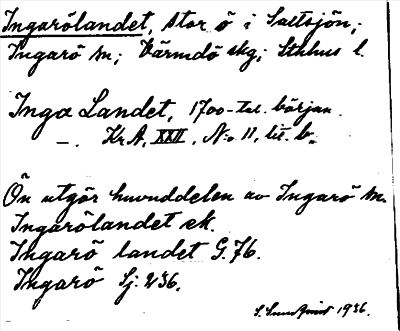 Ingarölandet, stor ö i Saltsjön;
Ingarö sn; Värmdö skg; Sthlms l.
Inga Landet, 1700-tal. början.
—. Kr A, XXII, N:o 11, lit. b.
Ön utgör huvuddelen av Ingarö sn.
Ingarölandet ek.
Ingarö landet G. 76.
Ingarö Sj: 236.
1936.